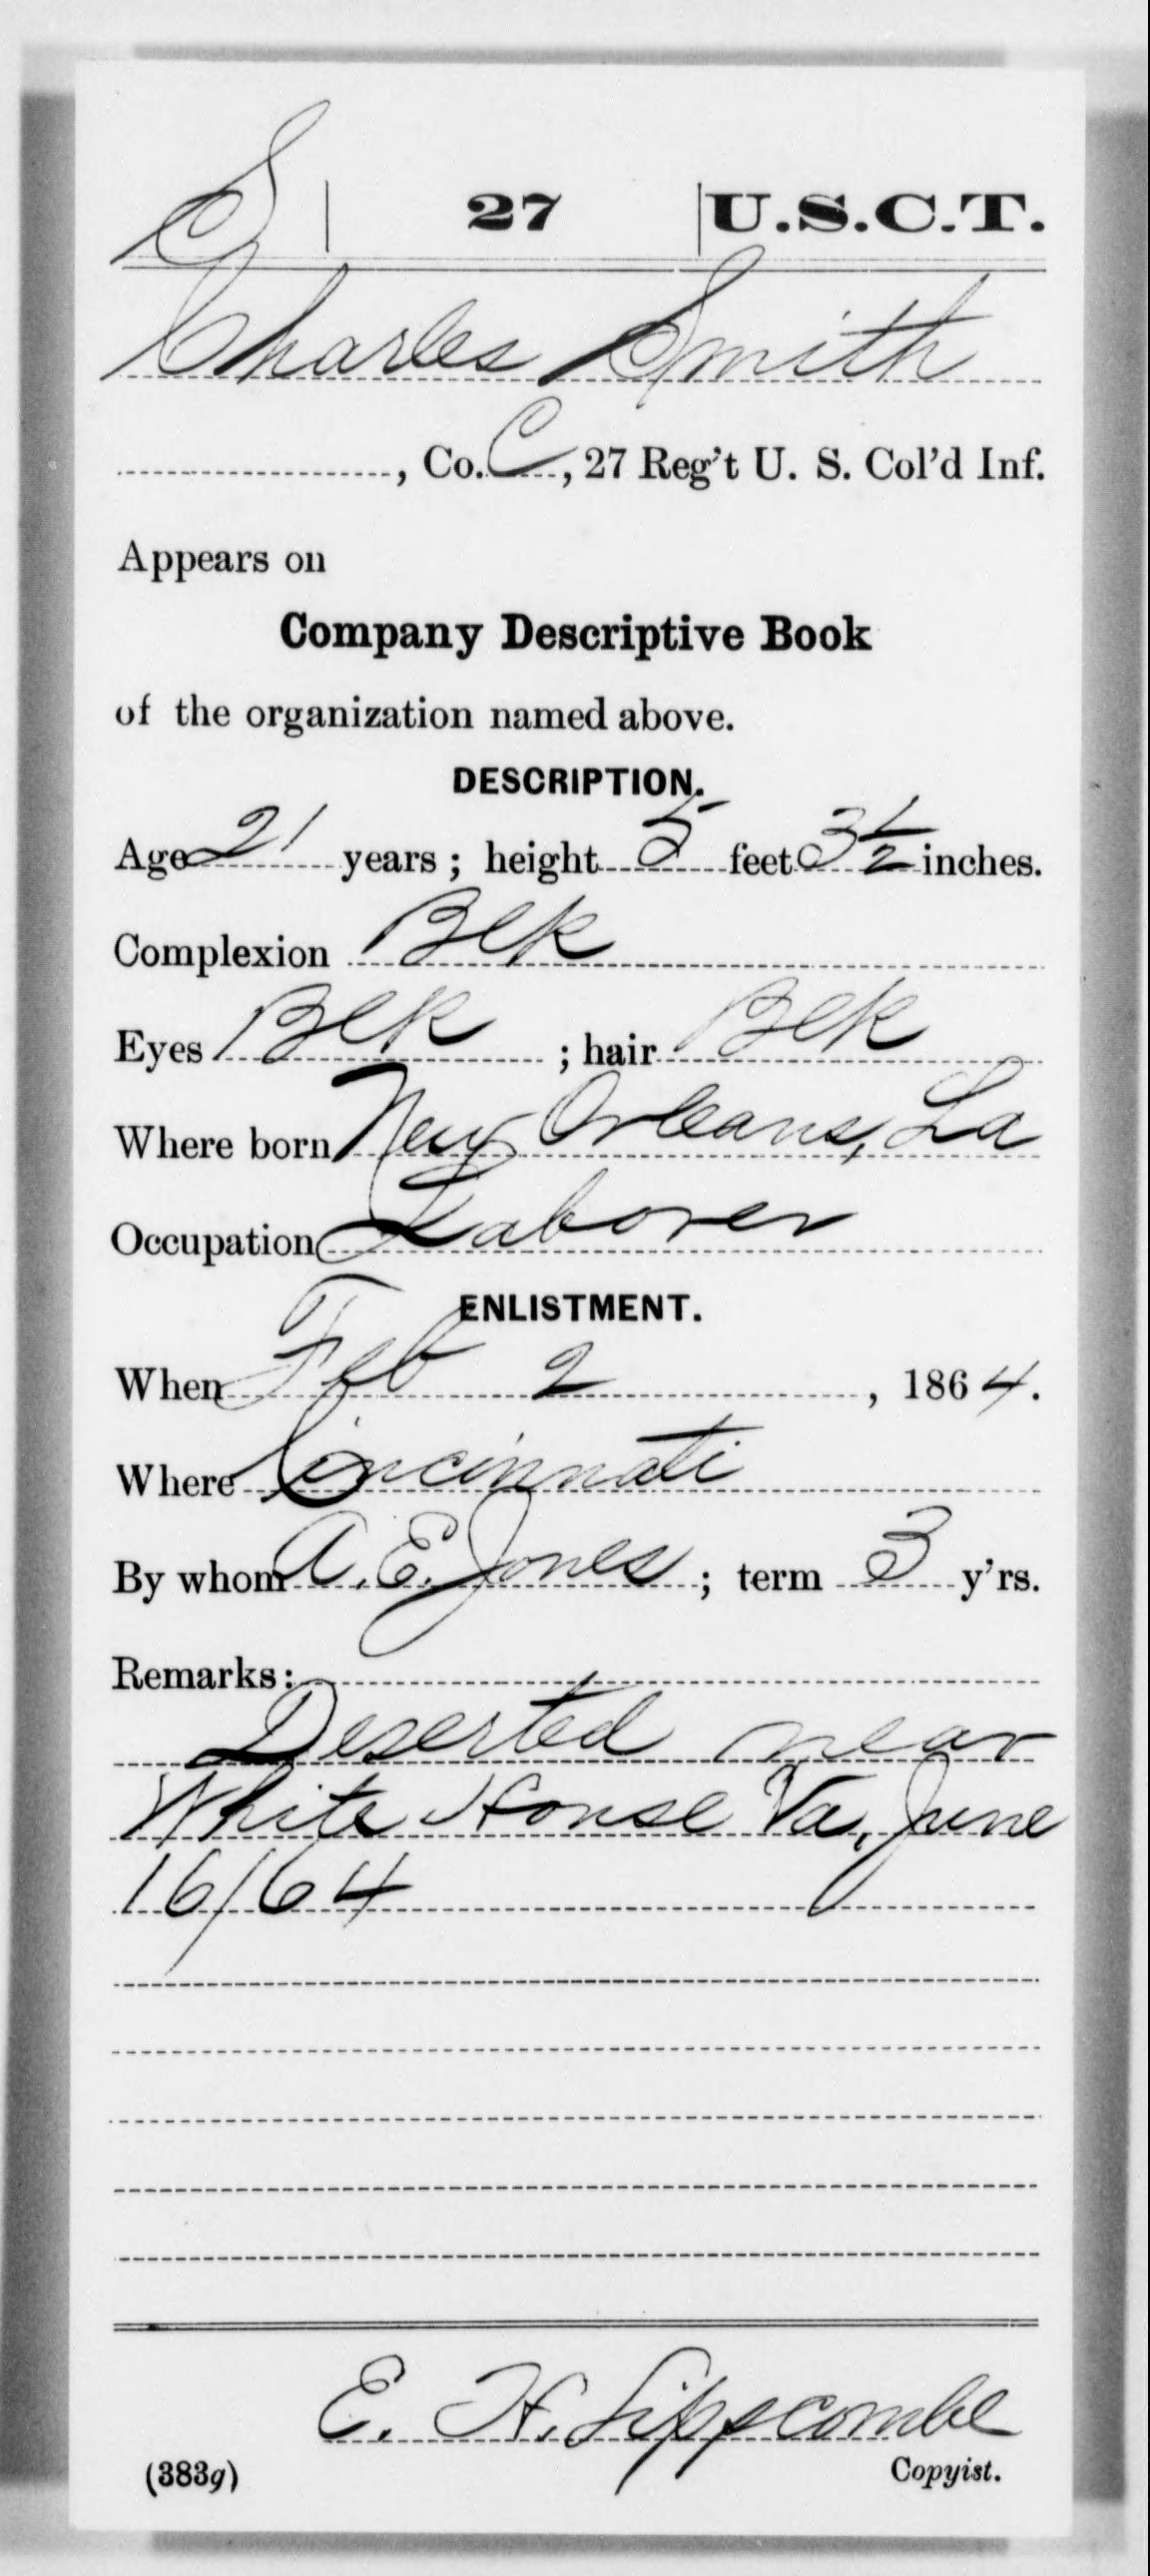 S | 27 | U.S.C.T.
Charles Smith
, Co. C, 27 Reg't U. S. Col'd Inf.
Appears on
Company Descriptive Book
of the organization named above.
DESCRIPTION.
Age 21 years; height 5 feet 3 1/2 inches.
Complexion Blk
Eyes Blk; hair Blk
Where born New Orleans, La
Occupation Laborer
ENLISTMENT.
When Feb 2, 1864.
Where Cincinnati
By whom A. E. Jones; term 3 y'rs.
Remarks:
Deserted near
White House Va, June
16/64
E. H. Lippscombe
(383g) Copyist.